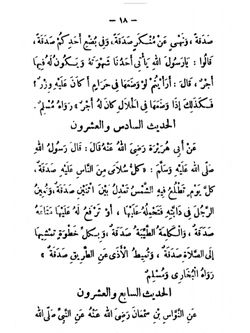 — ١٨ —
صَدَقَةٌ، وَنَهْىٌ عَنْ مُنْكَرٍ صَدَقَةٌ، وَفِى بُضْعِ أَحَدِكُمْ صَدَقَةٌ،
قَالُوا : يَارَسُولَ اللهِ أَيَأْتِى أَحَدُنَا شَهْوَتَهُ وَيَكُونُ لَهُ فِيهَا
أَجْرٌ ، قَالَ : أَرَأَيْتُمْ لَوْ وَضَعَهَا فِى حَرَامٍ أَكَانَ عَلَيْهِ وِزْرٌ ؟
فَكَذَلِكَ إِذَا وَضَعَهَا فِى الْحَلَالِ كَانَ لَهُ أَجْرٌ » رَوَاهُ مُسْلِمٌ
الحديث السادس والعشرون
عَنْ أَبِى هُرَيْرَةَ رَضِىَ اللهُ عَنْهُ قَالَ : قَالَ رَسُولُ اللهِ
صَلَّى اللهُ عَلَيْهِ وَسَلَّمَ : « كُلُّ سُلَامَى مِنَ النَّاسِ عَلَيْهِ صَدَقَةٌ
كُلَّ يَوْمٍ تَطْلُعُ فِيهِ الشَّمْسُ تَعْدِلُ بَيْنَ اثْنَيْنِ صَدَقَةٌ، وَتُعِينُ
الرَّجُلَ فِى دَابَّتِهِ فَتَحْمِلُهُ عَلَيْهَا ، أَوْ تَرْفَعُ لَهُ عَلَيْهَا مَتَاعَهُ
صَدَقَةٌ ، وَالْكَلِمَةُ الطَّيِّبَةُ صَدَقَةٌ، وَبِكُلِّ خَطْوَةٍ تَمْشِيهَا
إِلَى الصَّلَاةِ صَدَقَةٌ ، وَتُمِيطُ الْأَذَى عَنِ الطَّرِيقِ صَدَقَةٌ »
رَوَاهُ الْبُخَارِى وَمُسْلِمٌ
الحديث السابع والعشرون
عَنِ النَّوَّاسِ بْنِ سَمْعَانَ رَضِىَ اللهُ عَنْهُ عَنِ النَّبِىِّ صَلَّى اللهُ